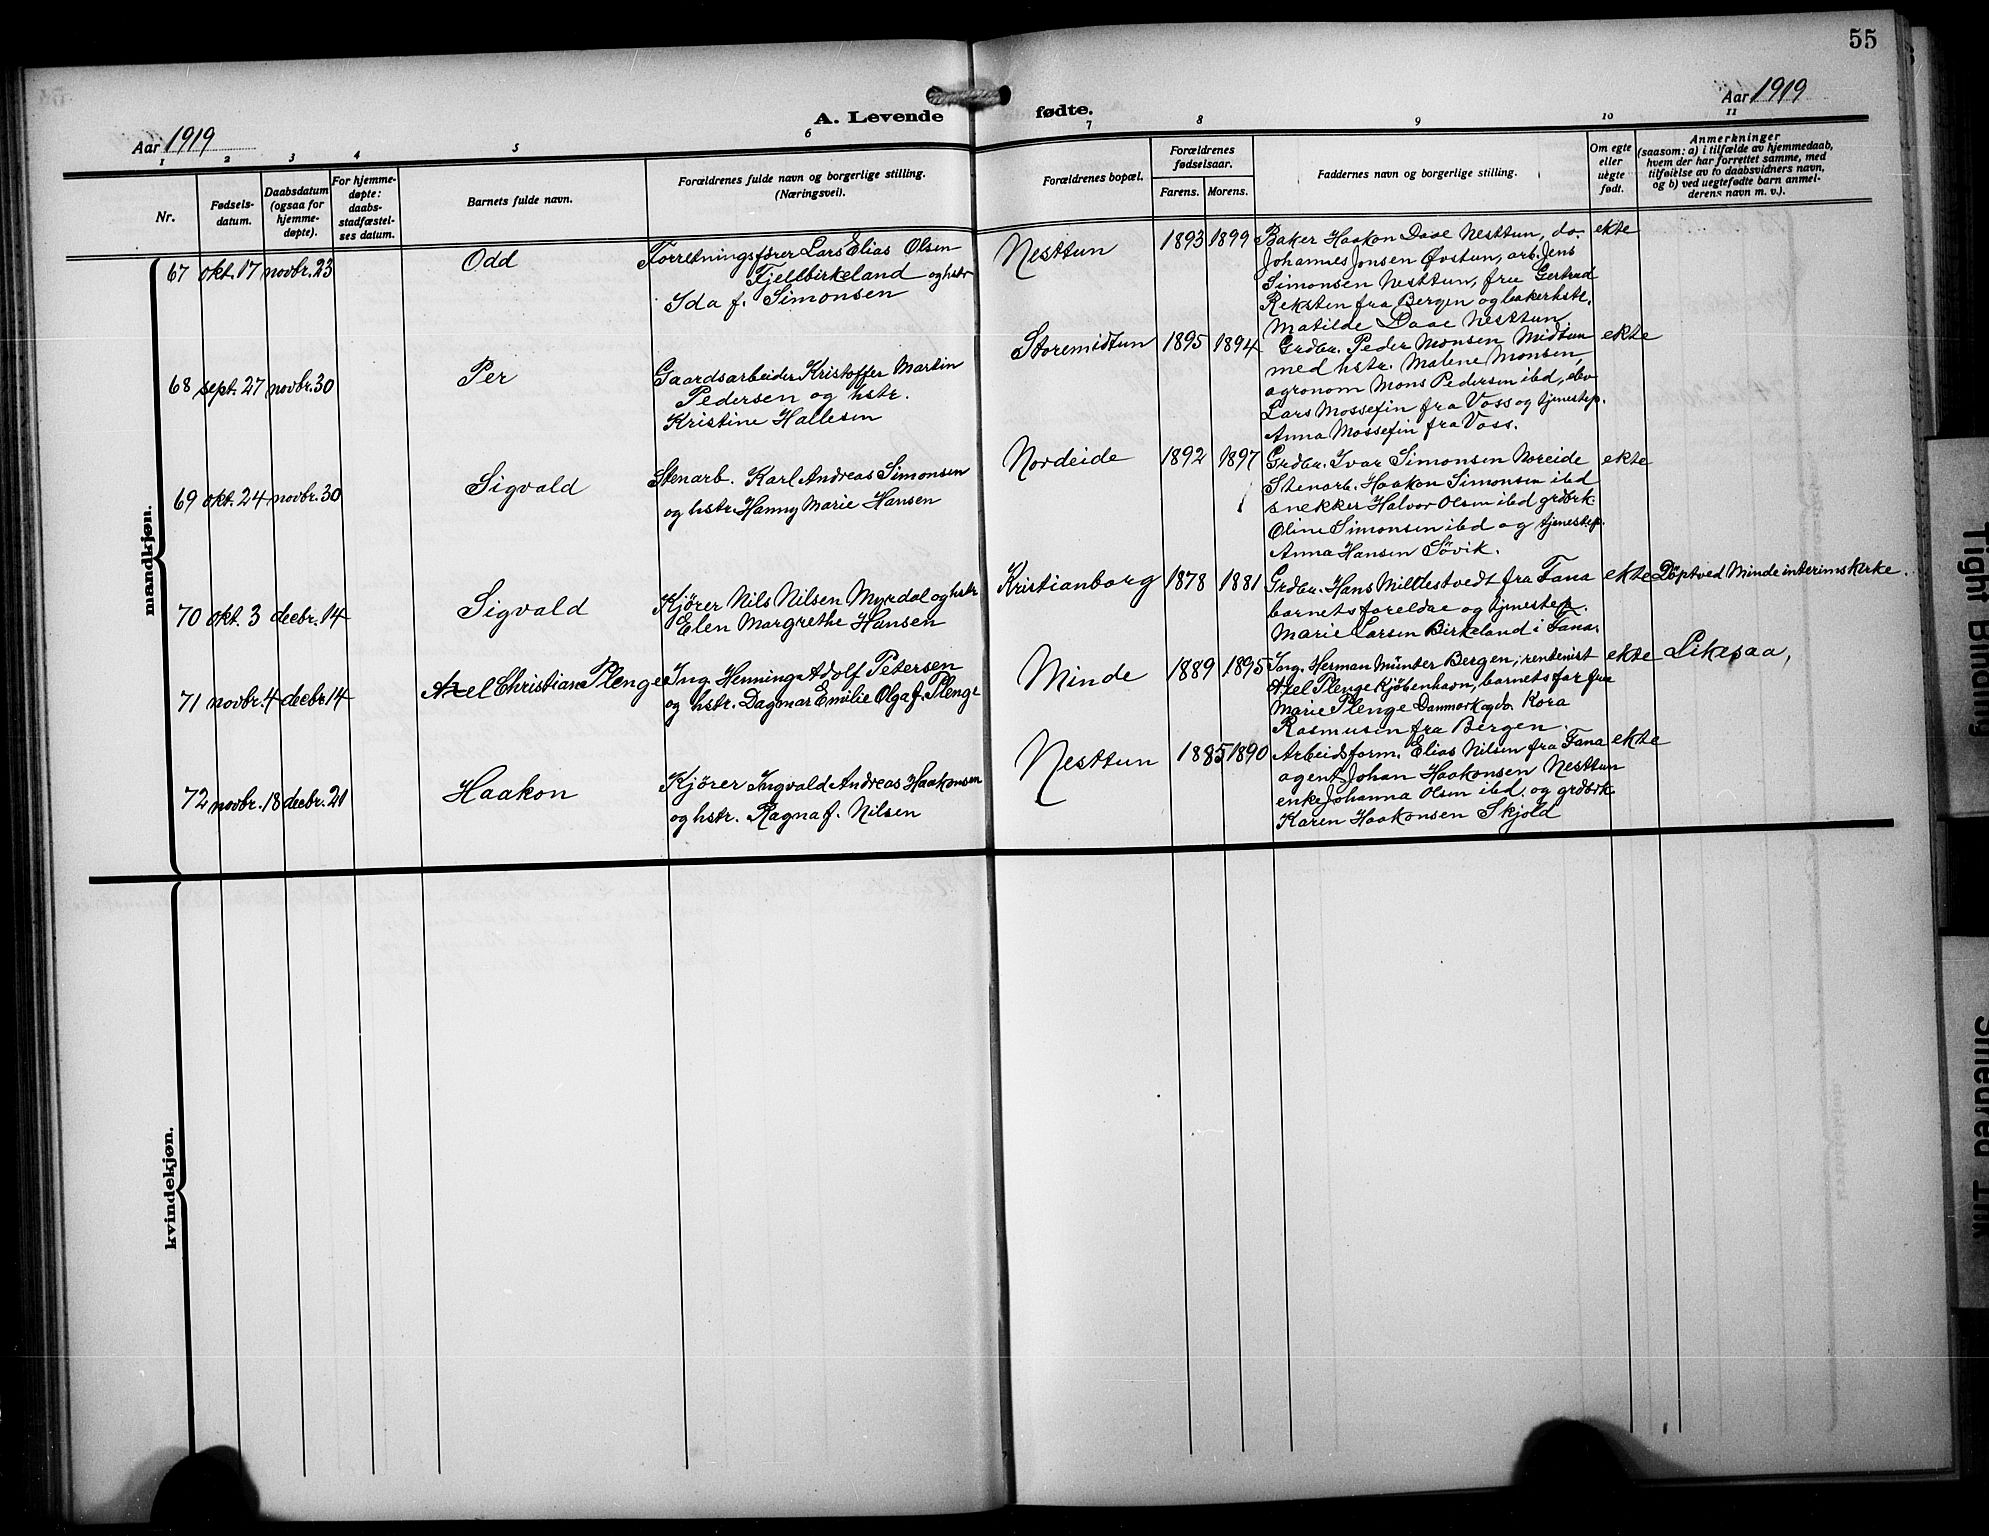 55
Aar 1919
A. Levende
fødte.
Aar 1919
1 2 3 4 5 6 7 8 9 10 11
Nr.
Fødsels-
datum.
Daabsdatum
(ogsaa for
hjemme-
døpte).
For hjemme-
døpte:
daabs-
stadfæstel-
ses datum.
Barnets fulde navn.
Forældrenes fulde navn og borgerlige stilling.
(Næringsvei).
Forældrenes bopæl.
Forældrenes
fødselsaar.
Farens. Morens.
Faddernes navn og borgerlige stilling.
Om egte
eller
uegte
født.
Anmerkninger
(saasom: a) i tilfælde av hjemmedaab,
hvem der har forrettet samme, med
tilføielse av to daabsvidners navn,
og b) ved uegtefødte barn anmel-
derens navn m. v.).
mandkjøn.
67 okt. 17 novbr. 23 Odd
Forretningsfører Lars Elias Olsen
Fjellbirkeland og hstr
Ida f. Simonsen
Nesttun 1893 1899
Baker Haakon Daae Nesttun, do.
Johannes Jonsen Øvstun, arb. Jens
Simonsen Nesttun, frue Gertrud
Reksten fra Bergen og bakerhstr.
Matilde Daae Nesttun
ekte
68 sept. 27 novbr. 30 Per
Gaardsarbeider Kristoffer Martin
Pedersen og hstr.
Kristine Hallesen
Storemidtun 1895 1894
Grdbr. Peder Monsen Midtun
med hstr. Malene Monsen,
agronom Mons Pedersen ibd, elev
Lars Mossefin fra Voss og tjenestep.
Anna Mossefin fra Voss.
ekte
69 okt. 24 novbr. 30 Sigvald
Stenarb. Karl Andreas Simonsen
og hstr. Hanny Marie Hansen
Nordeide 1892 1897
Grdbr. Ivar Simonsen Noreide
Stenarb. Haakon Simonsen ibd
snekker Halvor Olsen ibd grdbrk.
Oline Simonsen ibd og tjenestep.
Anna Hansen Søvik.
ekte
70 okt. 3 decbr. 14 Sigvald
Kjører Nils Nilsen Myrdal og hstr
Elen Margrethe Hansen
Kristianborg 1878 1881
Grdbr. Hans Milllestvedt fra Fana
barnets foreldre og tjenestep.
Marie Larsen Birkeland i Fana.
ekte Döpt ved Minde interimskirke.
71 novbr. 4 decbr. 14 Axel Christian Plenge
Ing. Henning Adolf Petersen
og hstr. Dagmar Emilie Olga f. Plenge
Minde 1889 1895
Ing. Herman Münter Bergen, rentenist
Axel Plenge Kjöbenhavn, barnets far frue
Marie Plenge Danmark og do. Kora
Rasmusen fra Bergen.
ekte Likesaa,
72 novbr. 18 decbr. 21 Haakon
Kjörer Ingvald Andreas Haakonsen
og hstr. Ragna f. Nilsen
Nesttun 1885 1890
Arbeidsform. Elias Nilsen fra Fana
agent Johan Haakonsen Nesttun
enke Johanna Olsen ibd. og grdbrk
Karen Haakonsen Skjold
ekte
kvindekjøn.
Tight Binding
Smeared Ink